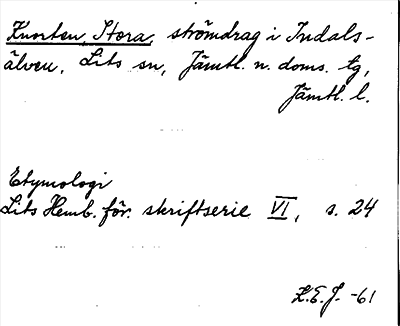 Knorten, Stora, strömdrag i Indals-
älven, Lits sn, Jämtl. n. doms. tg,
Jämtl. l.
Etymologi
Lits Hemb. för. skriftserie VI, s. 24
L.E.J. -61